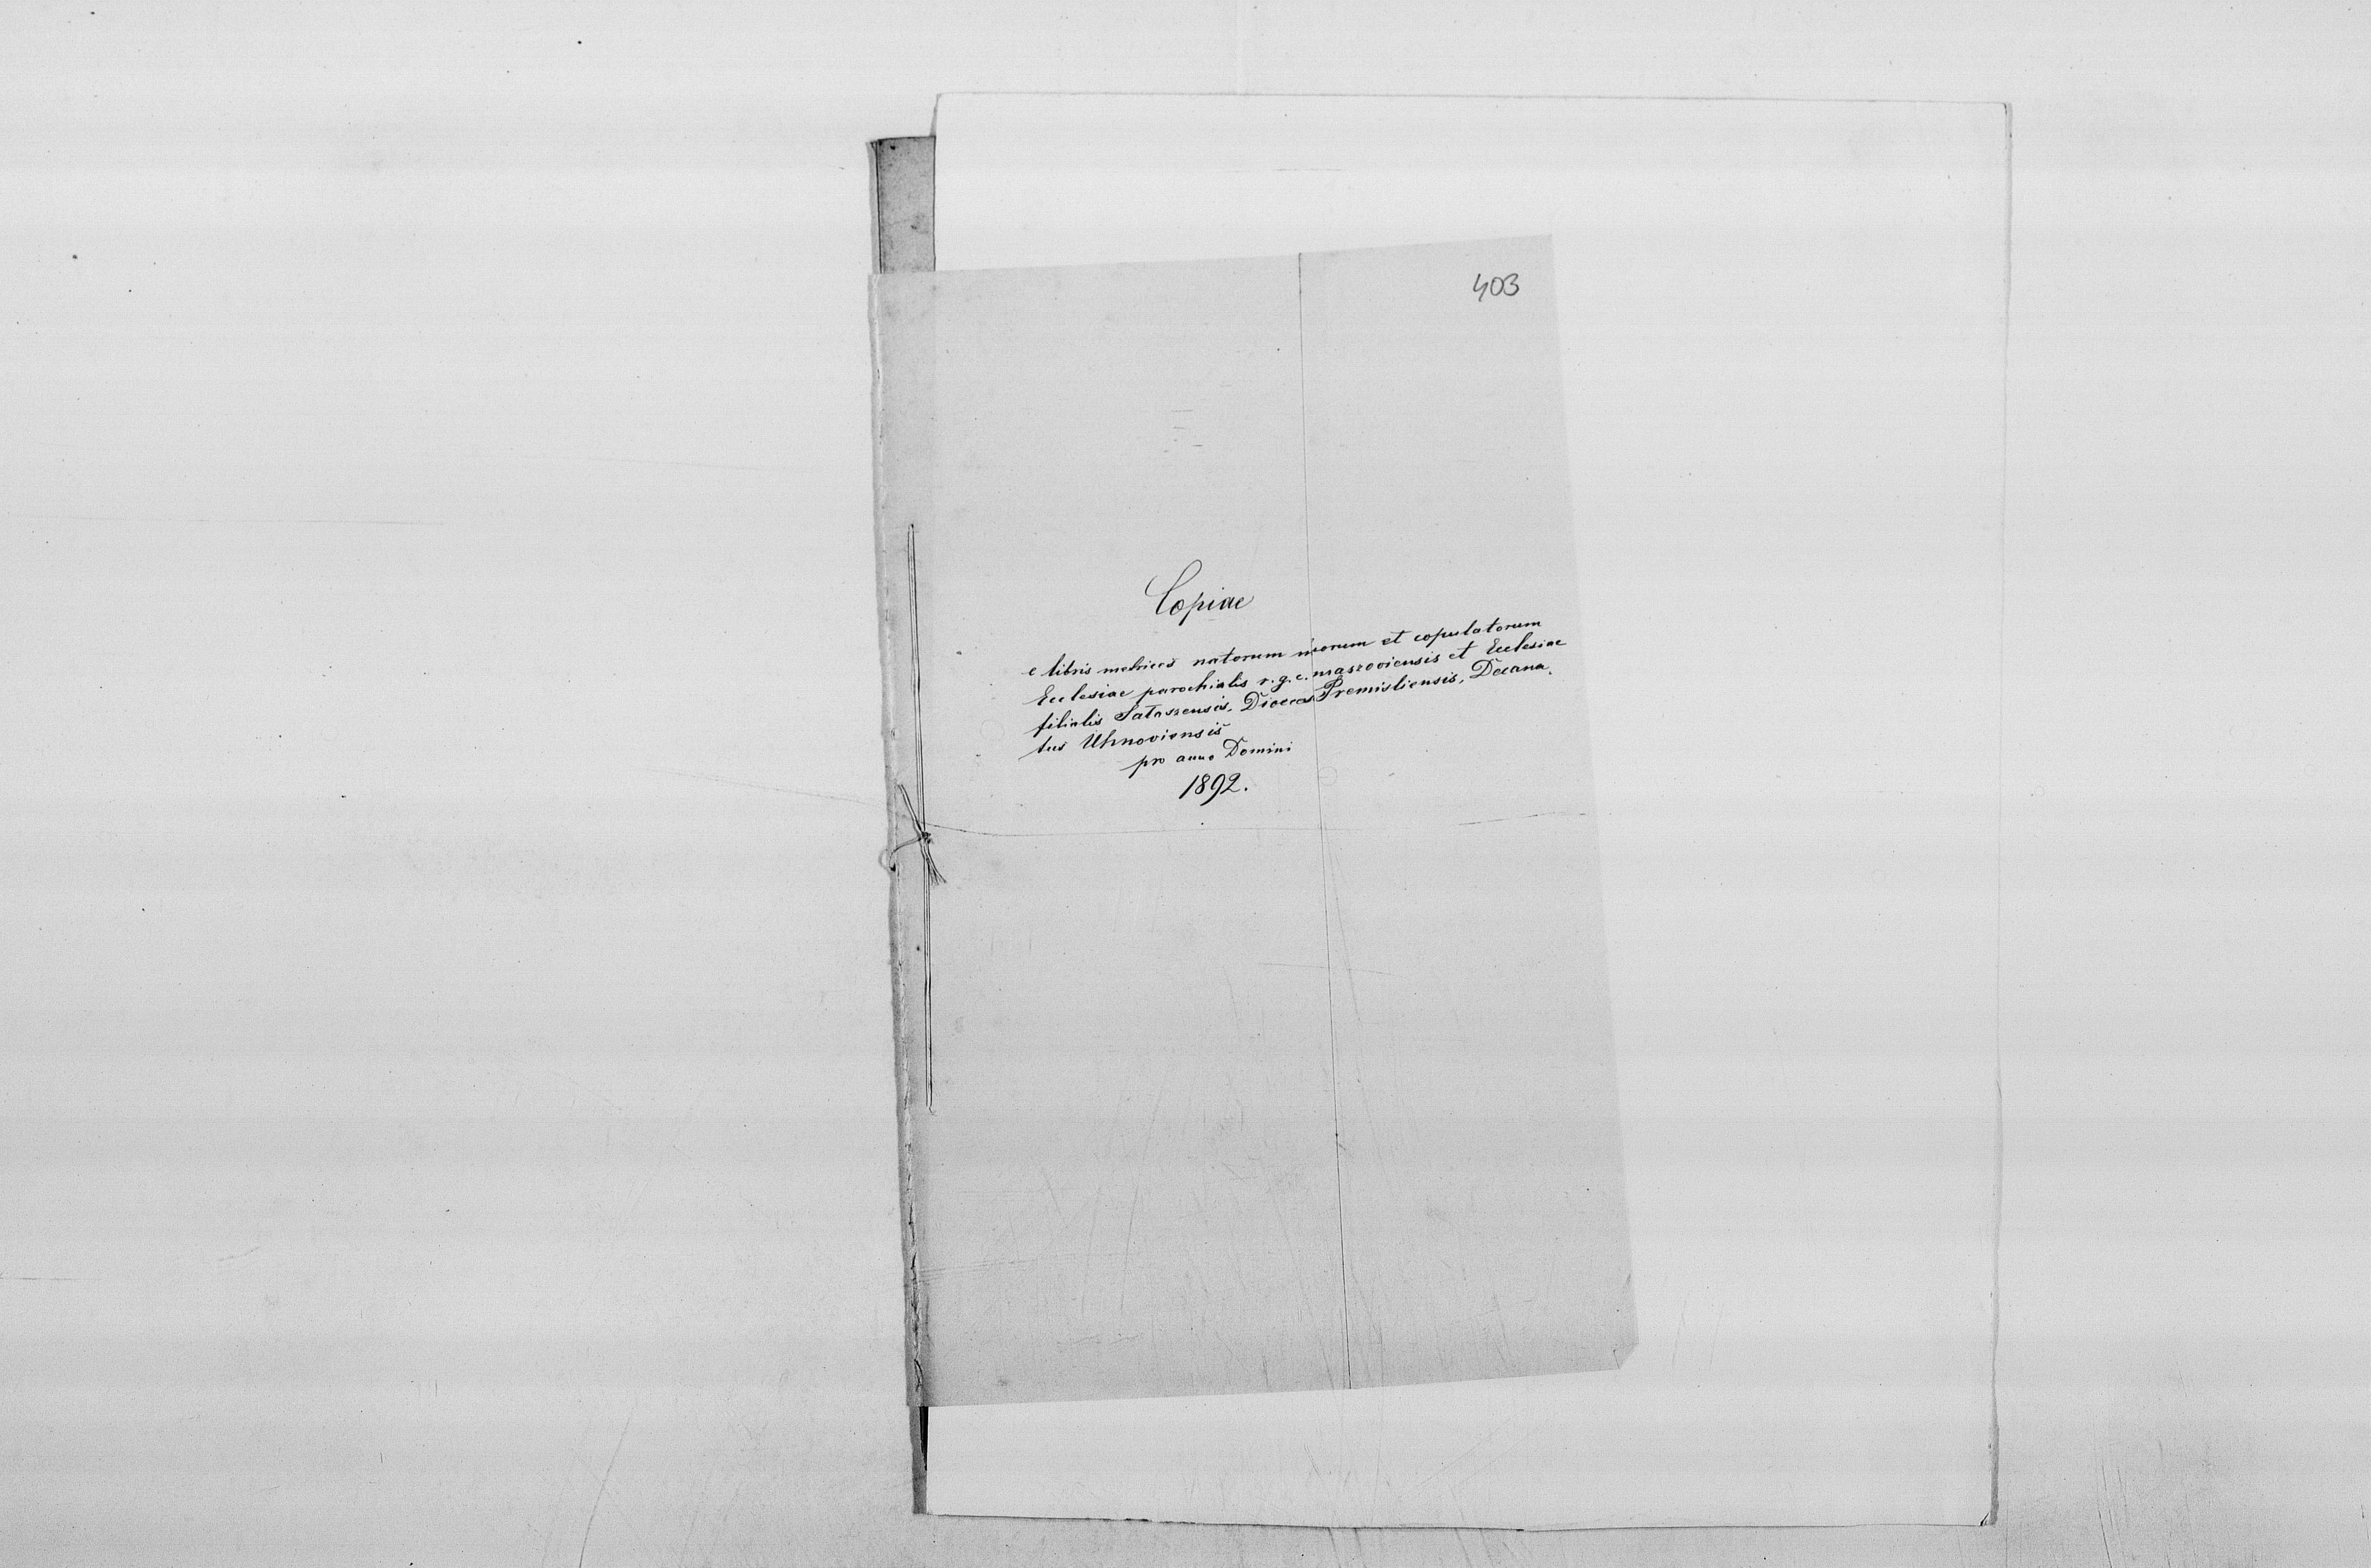 403
Copiae
e libris metrices natorum morum et copulatorum
Ecclesiae parochialis r. g. c. nraszoviensis et Ecclesiae
filialis Sataszensis, Dioeces Premisliensis, Decana
tus Uhnoviensis
pro anno Domini
1892.